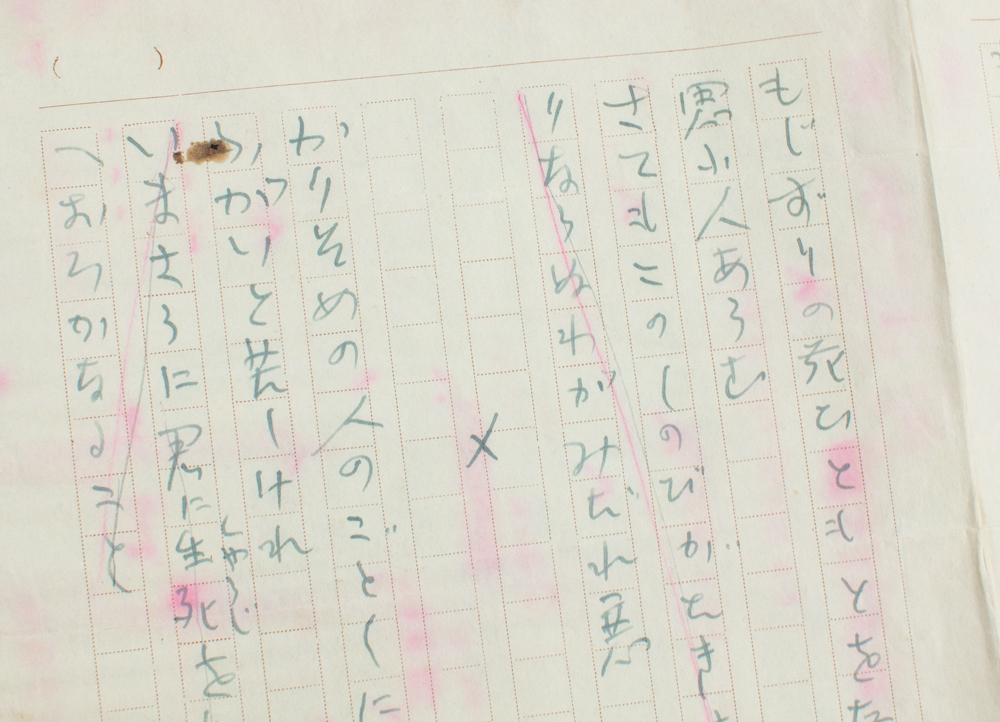 もじずりの花ひともとをた
思ふ人あらむ
さてもこのしのびがたき
りならぬわがみだれ
×
かりそめの人のごとくに
がいと苦しけれ
いまさらに思に生死を
しやうじ
へおろかなること